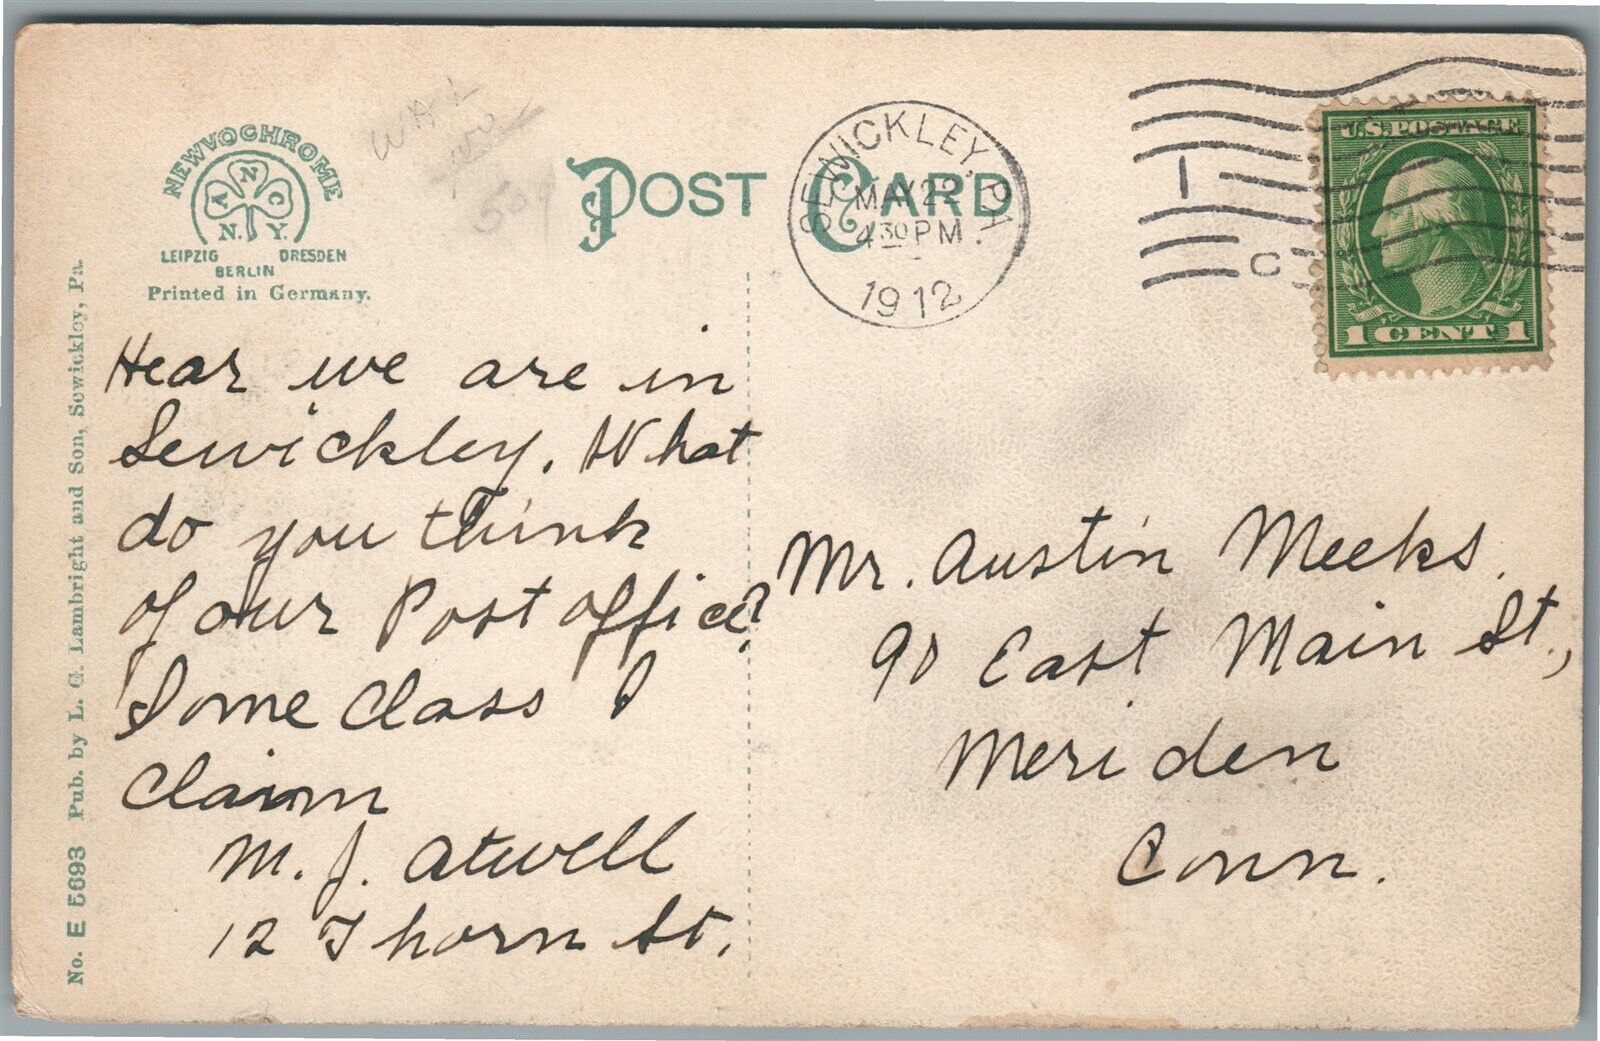 NEWVOCHROME
A N C
N. Y.
LEIPZIG DRESDEN
BERLIN
Printed in Germany.
WAL
POST CARD
SEWICKLEY, PA.
MAY 22
4 30 PM.
1912
1
C
U.S. POSTAGE
1 CENT 1
No. E 5693 Pub. by L. G. Lambright and Son, Sewickley, Pa.
Hear we are in
Sewickley. What
do you think
of our Post office?
Some Class I
Claim
M. J. Atwell
12 Thorn St.
Mr. Austin Meeks.
90 East Main St.,
Meriden
Conn.